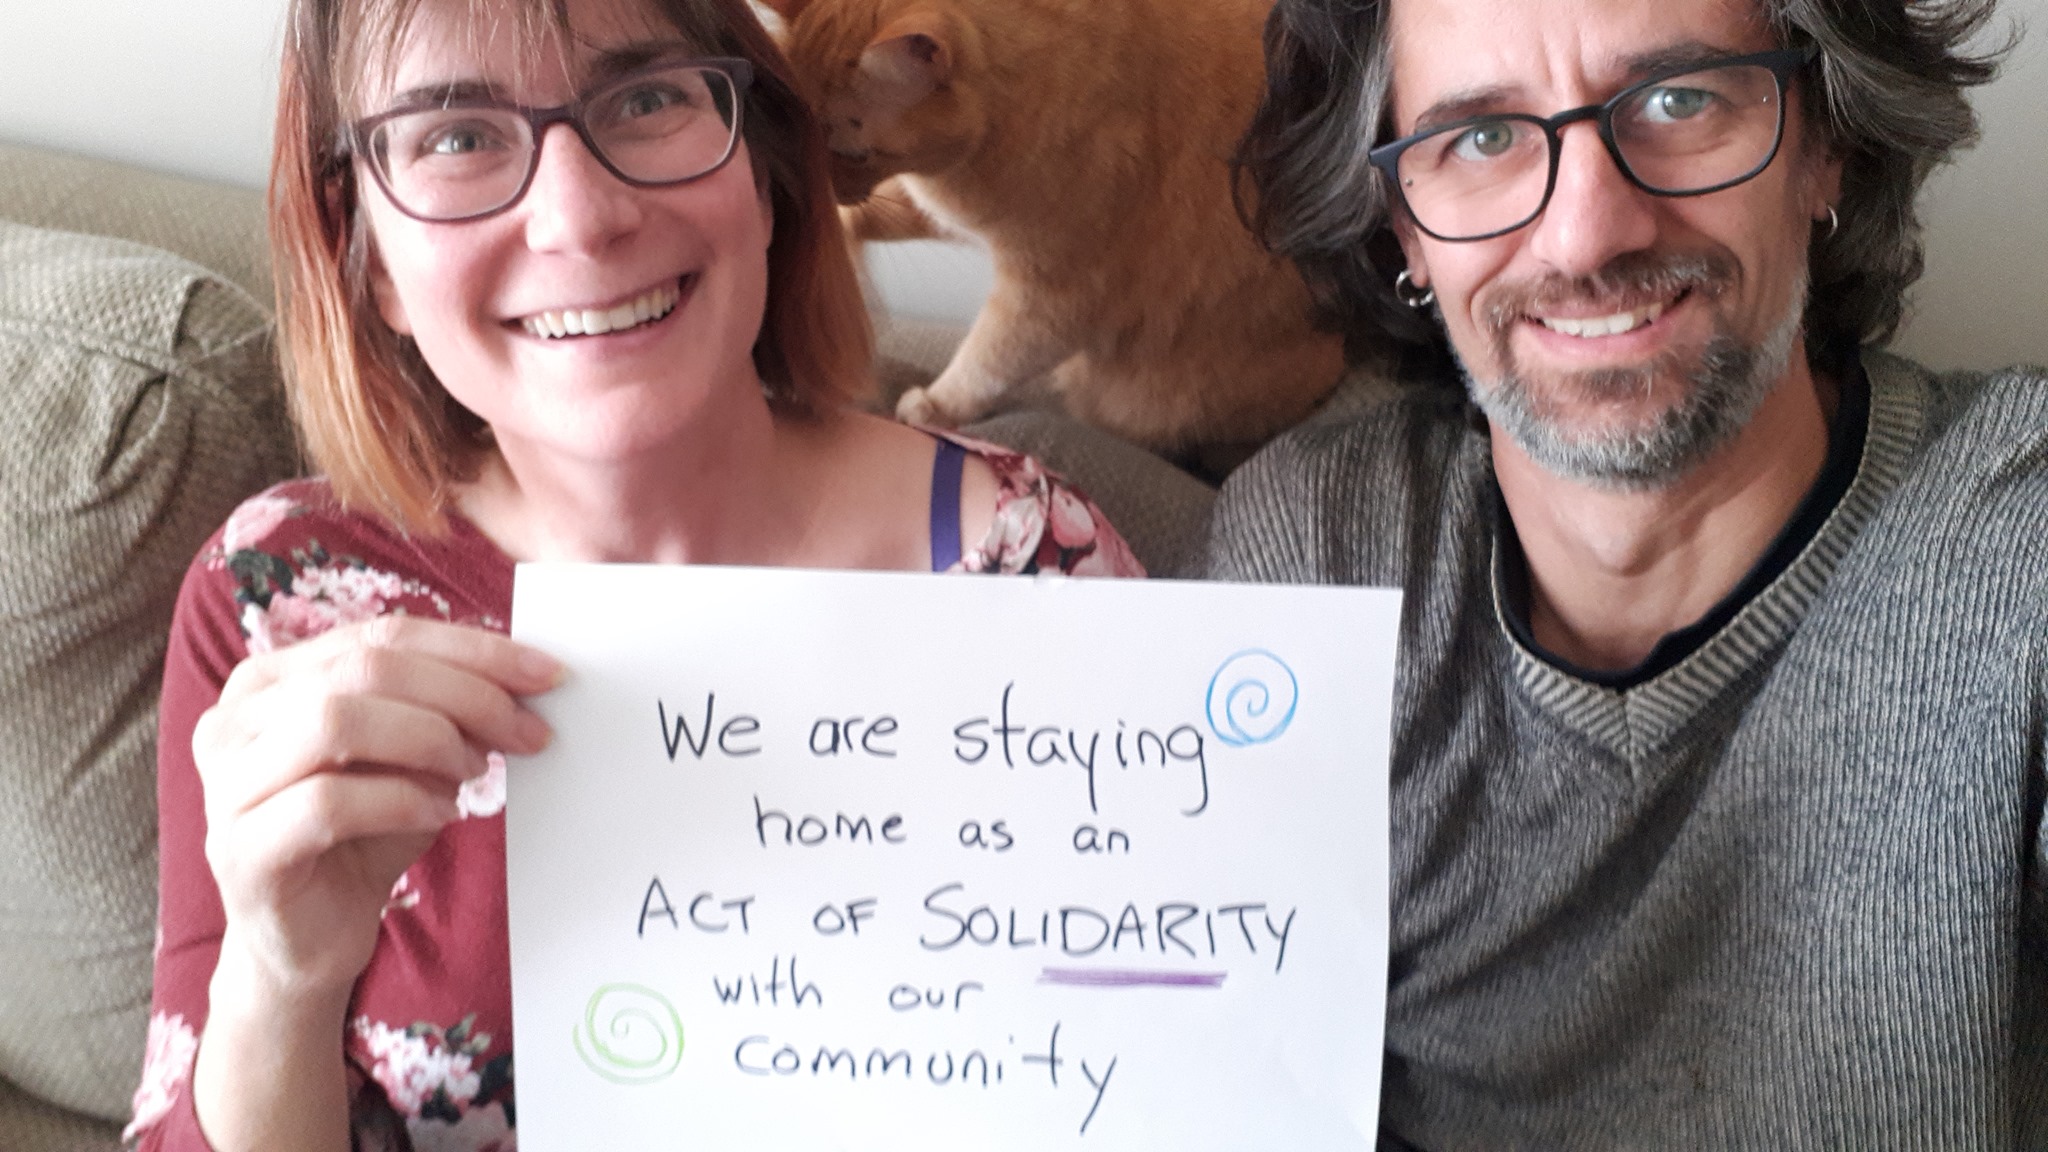 We are staying
home as an
ACT OF SOLIDARITY
with our
community